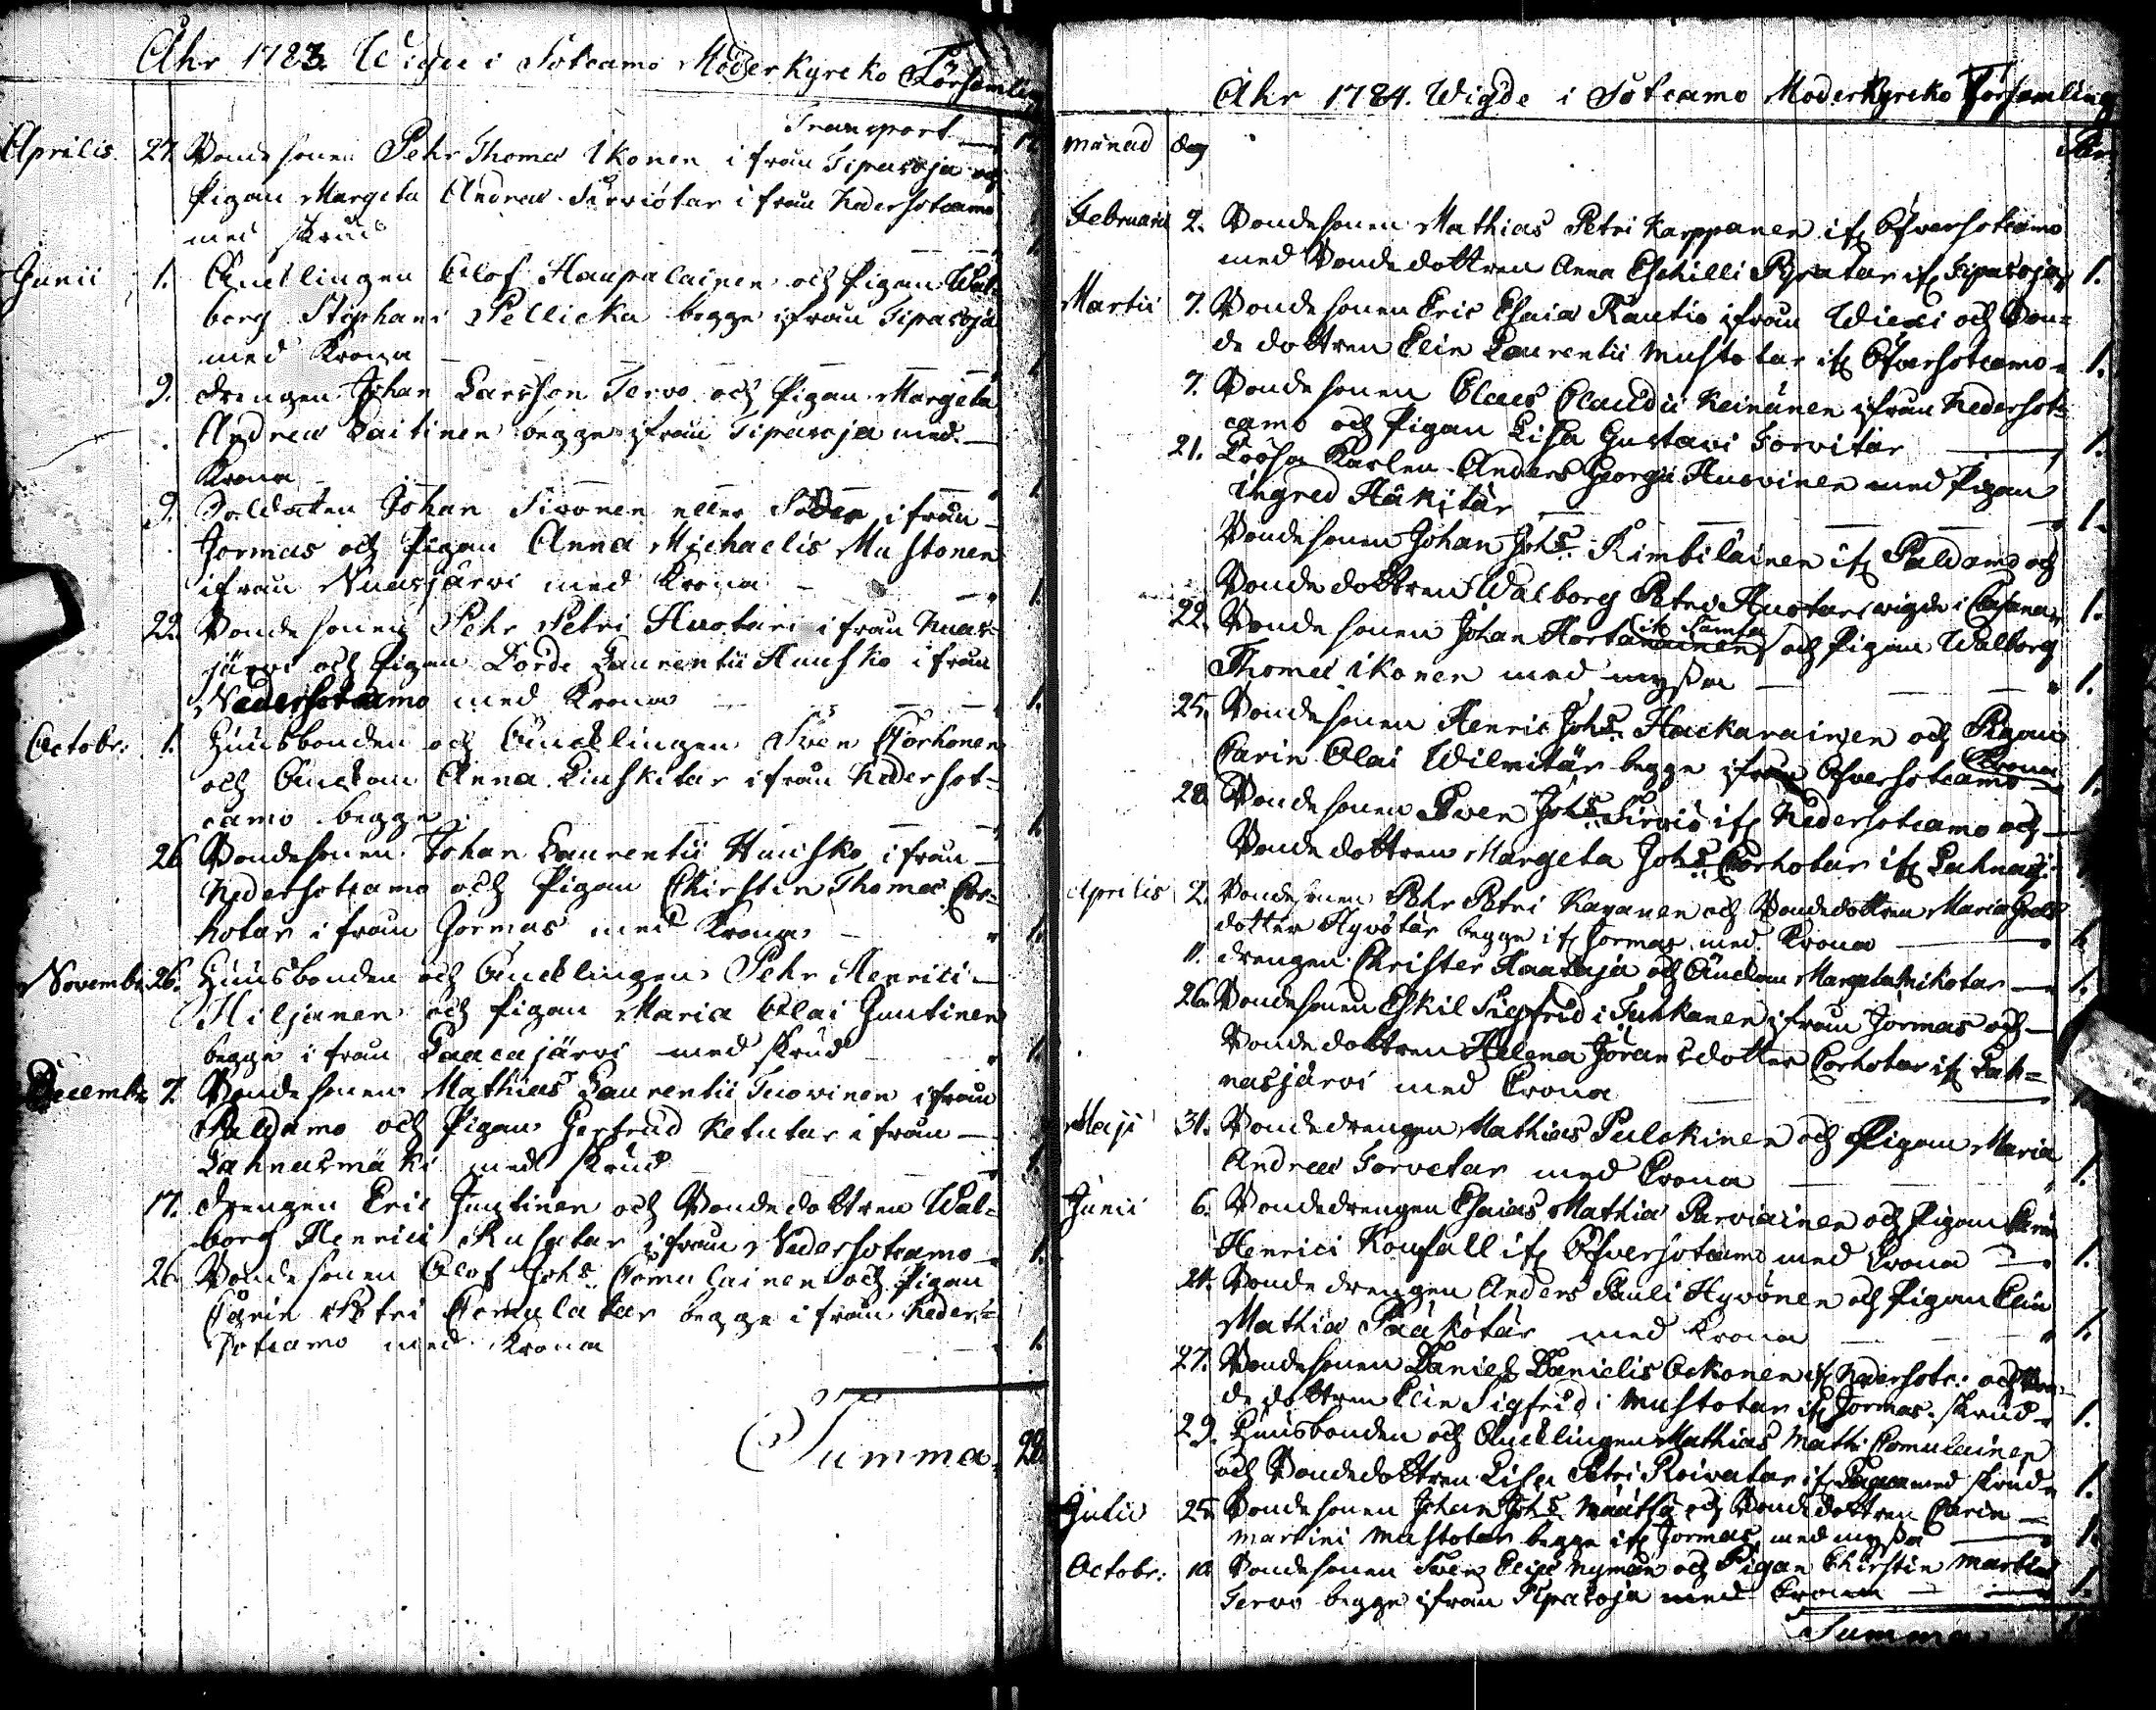 Åhr 1783. Wigde i Sotcamo Moderkyrko Församling
Transport
Aprilis. 27. Bondesonen Pehr Thomæ Ikonen ifrån Tipasoja och
Pigan Margeta Andreæ Sirviötar ifrån Nedersotcamo
med skrud
Junii 1. Änklingen Olof Haapalainen och Pigan Wal-
borg Stephani Pellicka begge ifrån Tipasoja
med Krona
9. drengen Johan Larsson Tervo och Pigan Margeta
Andreæ Laitinen begge ifrån Tipasoja med
Krona 1.
9. Soldaten Johan Sironen eller Söder ifrån
Jormas och Pigan Anna Michaelis Mustonen
ifrån Nuasjärvi med Krona 1.
22. Bondesonen Pehr Petri Huotari ifrån Nuas-
järvi och Pigan Lorde Laurentii Huusko ifrån
Nedersotcamo med Krona 1.
Octobr: 1. Huusbonden och Änklingen Sven Corhonen
och Änckan Anna Kinskitar ifrån Nedersot-
camo begge 1.
26 Bondesonen Johan Laurentii Huusko ifrån
Nedersotcamo och Pigan Christin Thomæ Cor-
hotar ifrån Jormas med Krona 1.
Novembr. 26. Huusbonden och Äncklingen Pehr Henrici
Hiljanen och Pigan Maria Olai Juntinen
begge ifrån Laacajärvi med skrud 1.
Decembr. 7. Bondesonen Mathias Laurentii Tuovinen ifrån
Paldamo och Pigan Gertrud Ketutar ifrån
Lahnasmäki med skrud 1.
17. drengen Eric Juntinen och Bondedottren Wal-
borg Henrici Rusatar ifrån Nedersotcamo 1.
26. Bondesonen Olof Johs: Comulainen och Pigan
Carin Petri Comulatar begge ifrån Neder-
sotcamo med Krona 1.
Summa 28.
Åhr 1784. Wigde i Sotcamo Moderkyrko Församling
månad dag Par
Februarii 2. Bondesonen Mathias Petri Karppanen if: Öfversotcamo
med Bondedottren Anna Eschilli Pyratar if: Tipasoja 1.
Martii 7. Bondesonen Eric Esaiæ Rautio ifrån Wiexi och Bon-
de dottren Elin Laurentii Mustotar if: Öfversotcamo 1.
7. Bondesonen Claes Claudii Keinänen ifrån Nedersot-
camo och Pigan Lisa Gustavi Torvitär 1.
21. Lösa Karlen Anders Georgii Huovinen med Pigan
Ingred Häkitär 1.
Bondesonen Johan Johs: Kimbiläinen if: Paldamo och
Bondedottren Walborg Petri Huotar wigde i Cajana 1.
22. Bondesonen Johan Hortanainen och Pigan Walborg
Thomæ Ikonen med myssa 1.
25. Bondesonen Henric Johs: Hackarainen och Pigan
Carin Olai Wilmitär begge ifrån Öfversotcamo Crona 1.
28. Bondesonen Sven Johs: Sirviö if: Nedersotcamo och
Bondedottren Margeta Johs: Corhotar if: Lahnasj:
Aprilis 2. Bondesonen Pehr Petri Kananen och Bondedottren Maria
dotter Hyvötär begge if: Jormas med Krona 1.
11. drengen Christer Haataja och Änckan Margeta Mikotar 1.
26. Bondesonen Eskil Sigfridi Tuhkanen ifrån Jormas och
Bondedottren Helena Jöransdotter Corhotar if: Lah-
nasjärvi med Crona
Maji 31. Bondedrengen Mathias Pulckinen och Pigan Maria
Andreæ Torvetar med Crona 1.
Junii 6. Bondedrengen Esaias Mathiæ Parviainen och Pigan Carin
Henrici Komfall if: Öfversotcamo med Crona 1.
24. Bonde drengen Anders Pauli Hyvönen och Pigan Elin
Mathiæ Pääkötär med Krona 1.
27. Bondesonen Daniel Danielis Ockonen if: Nedersotc: och Bon-
de dottren Elin Sigfridi Mustotar if: Jormas. skrud 1.
29. Huusbonden och Äncklingen Mathias Math: Comulainen
och Bondedottren Lisa Petri Roivatar if: Laaca med skrud 1.
Julii 25. Bondesonen Johan Johs: Määttä och Bondedottren Carin
Martini Mustotar begge if: Jormas med myssa 1.
Octobr: 10. Bondesonen Sven Elias Nyman och Pigan Christin Martini
Tervo begge ifrån Tipasoja med Crona 1.
Summa